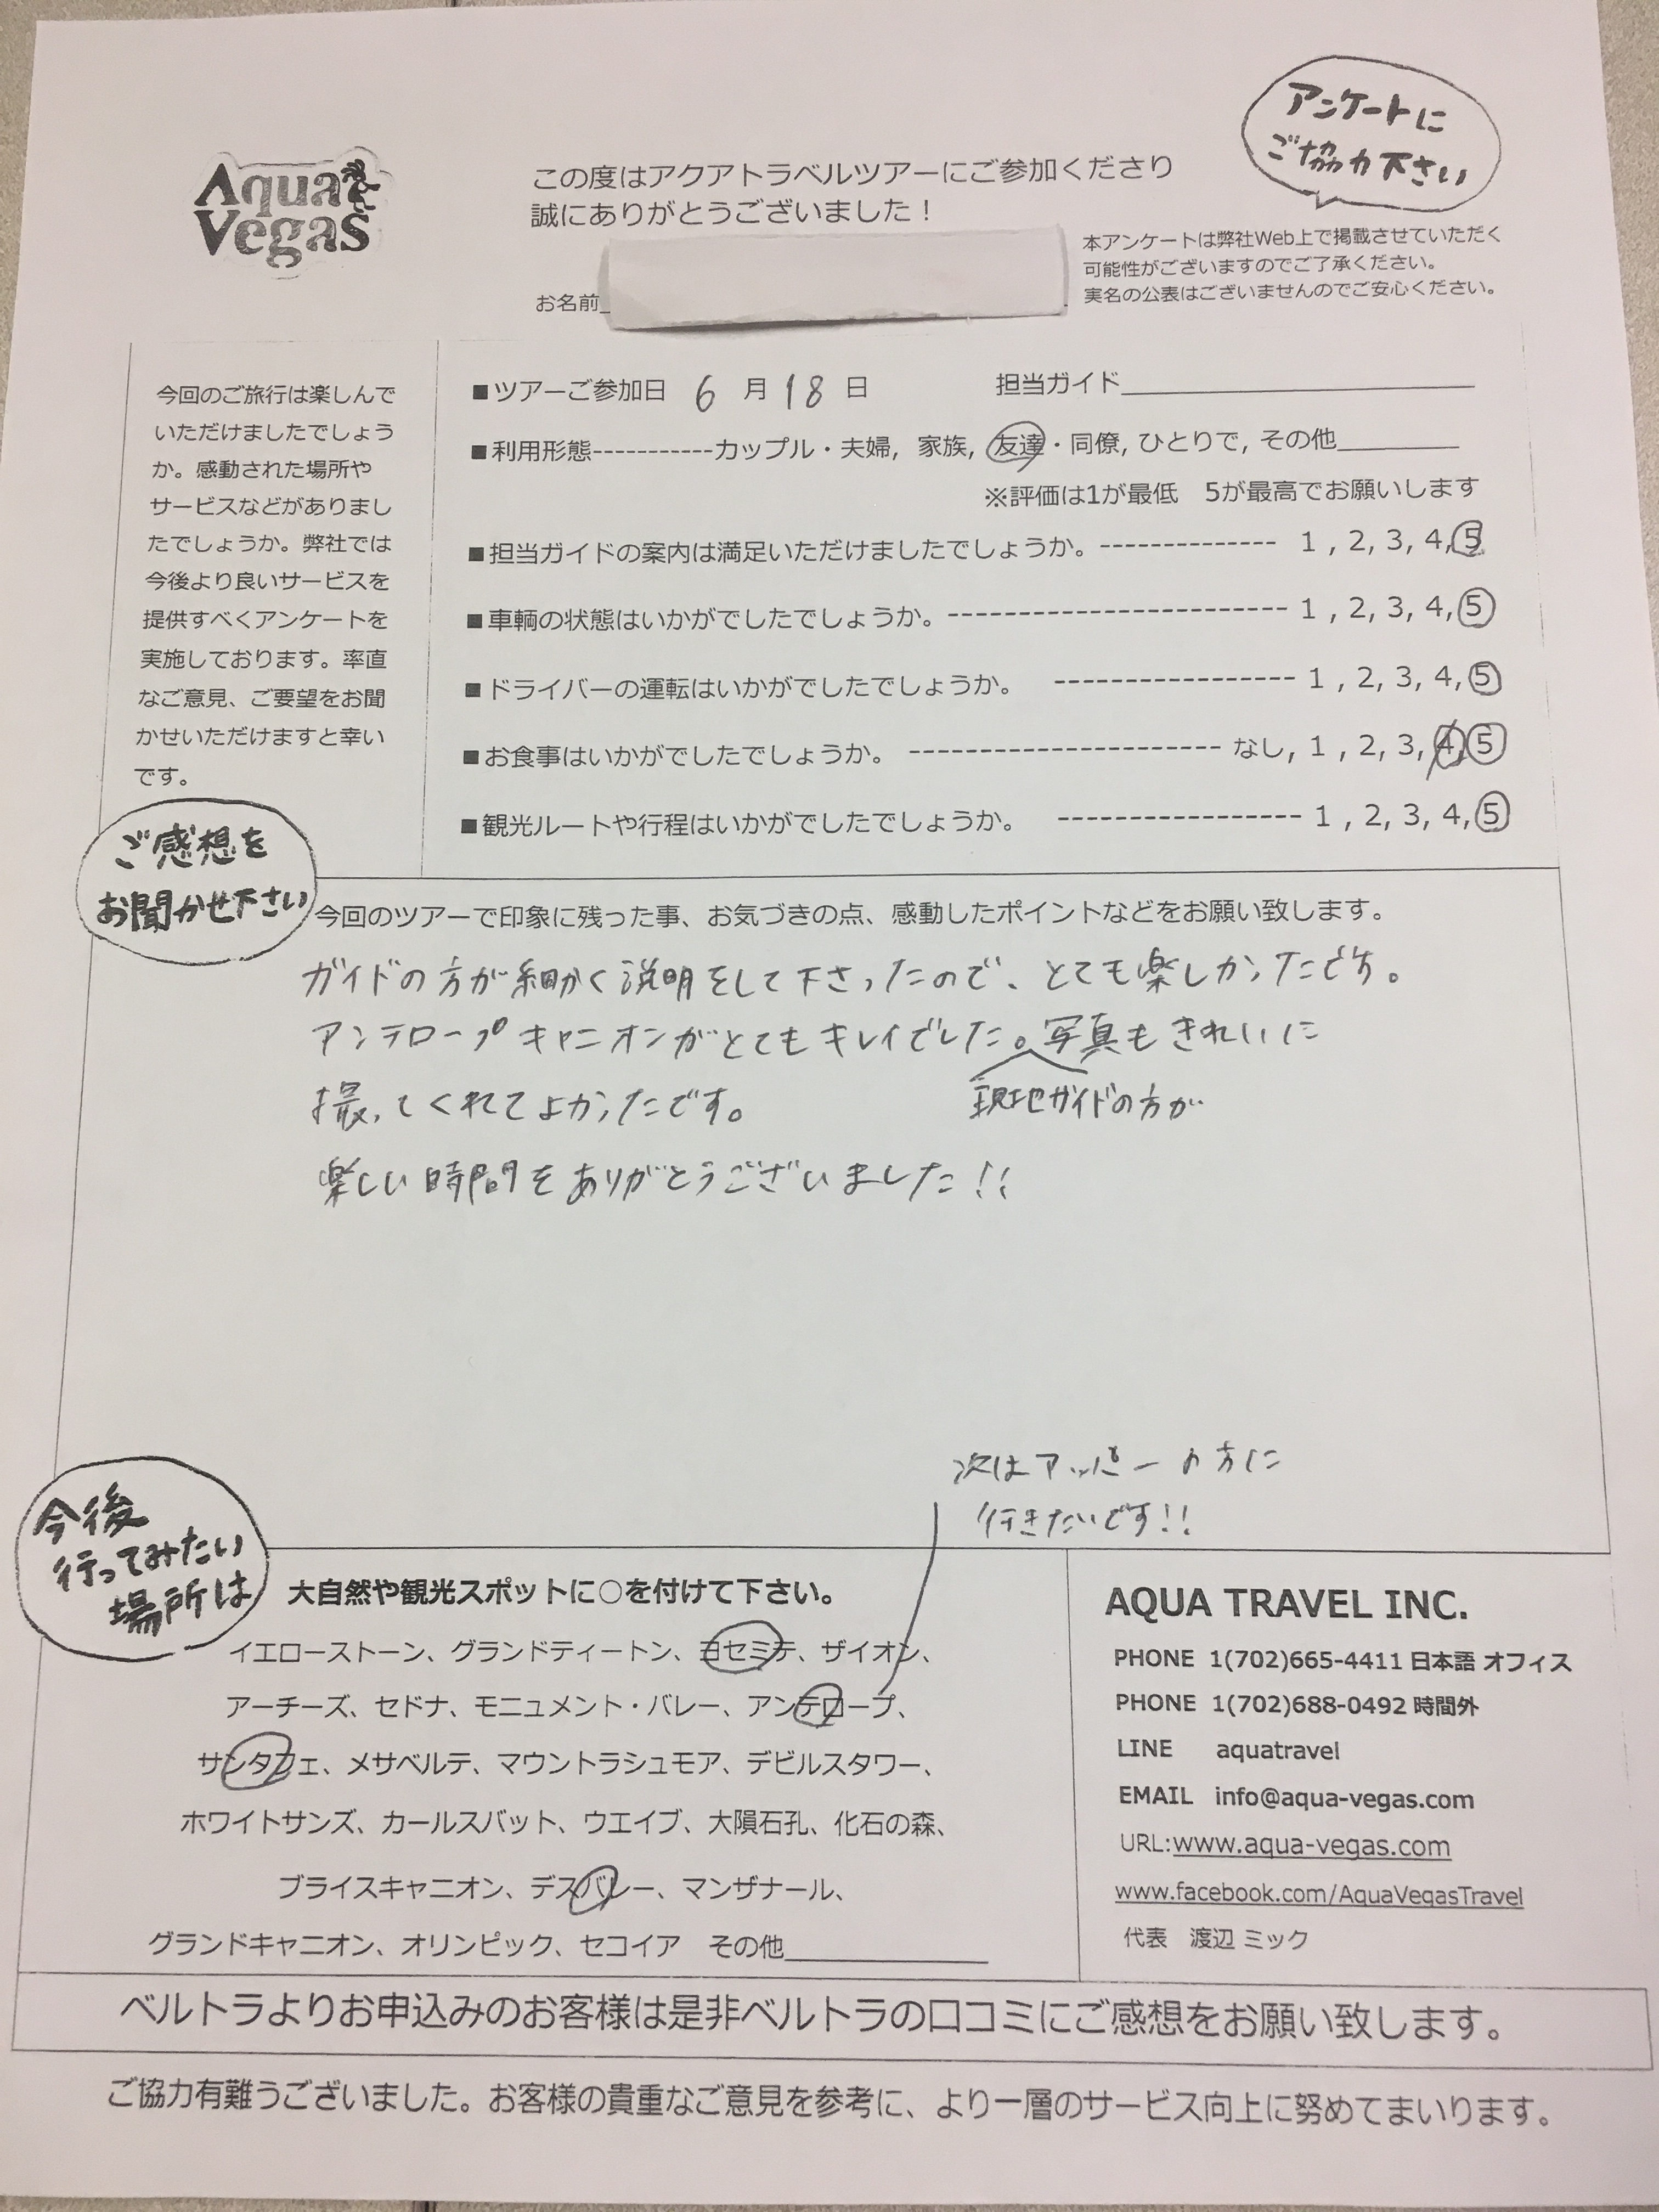 アンケートに
ご協力下さい
Aqua
Vegas
この度はアクアトラベルツアーにご参加くださり
誠にありがとうございました！
お名前
本アンケートは弊社Web上で掲載させていただく
可能性がございますのでご了承ください。
実名の公表はございませんのでご安心ください。
今回のご旅行は楽しんで
いただけましたでしょう
か。感動された場所や
サービスなどがありまし
たでしょうか。弊社では
今後より良いサービスを
提供すべくアンケートを
実施しております。率直
なご意見、ご要望をお聞
かせいただけますと幸い
です。
■ツアーご参加日 6 月 18 日 担当ガイド
■利用形態-----------カップル・夫婦, 家族, 友達・同僚, ひとりで, その他
※評価は1が最低 5が最高でお願いします
■担当ガイドの案内は満足いただけましたでしょうか。------------- 1 , 2, 3, 4, 5
■車輌の状態はいかがでしたでしょうか。------------------------ 1 , 2, 3, 4, 5
■ドライバーの運転はいかがでしたでしょうか。 ----------------- 1 , 2, 3, 4, 5
■お食事はいかがでしたでしょうか。 ---------------------- なし, 1 , 2, 3, 4, 5
■観光ルートや行程はいかがでしたでしょうか。 ----------------- 1 , 2, 3, 4, 5
ご感想を
お聞かせ下さい
今回のツアーで印象に残った事、お気づきの点、感動したポイントなどをお願い致します。
ガイドの方が細かく説明をして下さったので、とても楽しかったです。
アンテロープキャニオンがとてもキレイでした。写真もきれいに
現地ガイドの方が
撮ってくれてよかったです。
楽しい時間をありがとうございました!!
次はアッパーの方に
行きたいです!!
今後
行ってみたい
場所は
大自然や観光スポットに○を付けて下さい。
イエローストーン、グランドティートン、ヨセミテ、ザイオン、
アーチーズ、セドナ、モニュメント・バレー、アンテロープ、
サンタフェ、メサベルテ、マウントラシュモア、デビルスタワー、
ホワイトサンズ、カールスバット、ウエイブ、大隕石孔、化石の森、
ブライスキャニオン、デスバレー、マンザナール、
グランドキャニオン、オリンピック、セコイア その他
AQUA TRAVEL INC.
PHONE 1(702)665-4411 日本語 オフィス
PHONE 1(702)688-0492 時間外
LINE aquatravel
EMAIL info@aqua-vegas.com
URL:www.aqua-vegas.com
www.facebook.com/AquaVegasTravel
代表 渡辺 ミック
ベルトラよりお申込みのお客様は是非ベルトラの口コミにご感想をお願い致します。
ご協力有難うございました。お客様の貴重なご意見を参考に、より一層のサービス向上に努めてまいります。